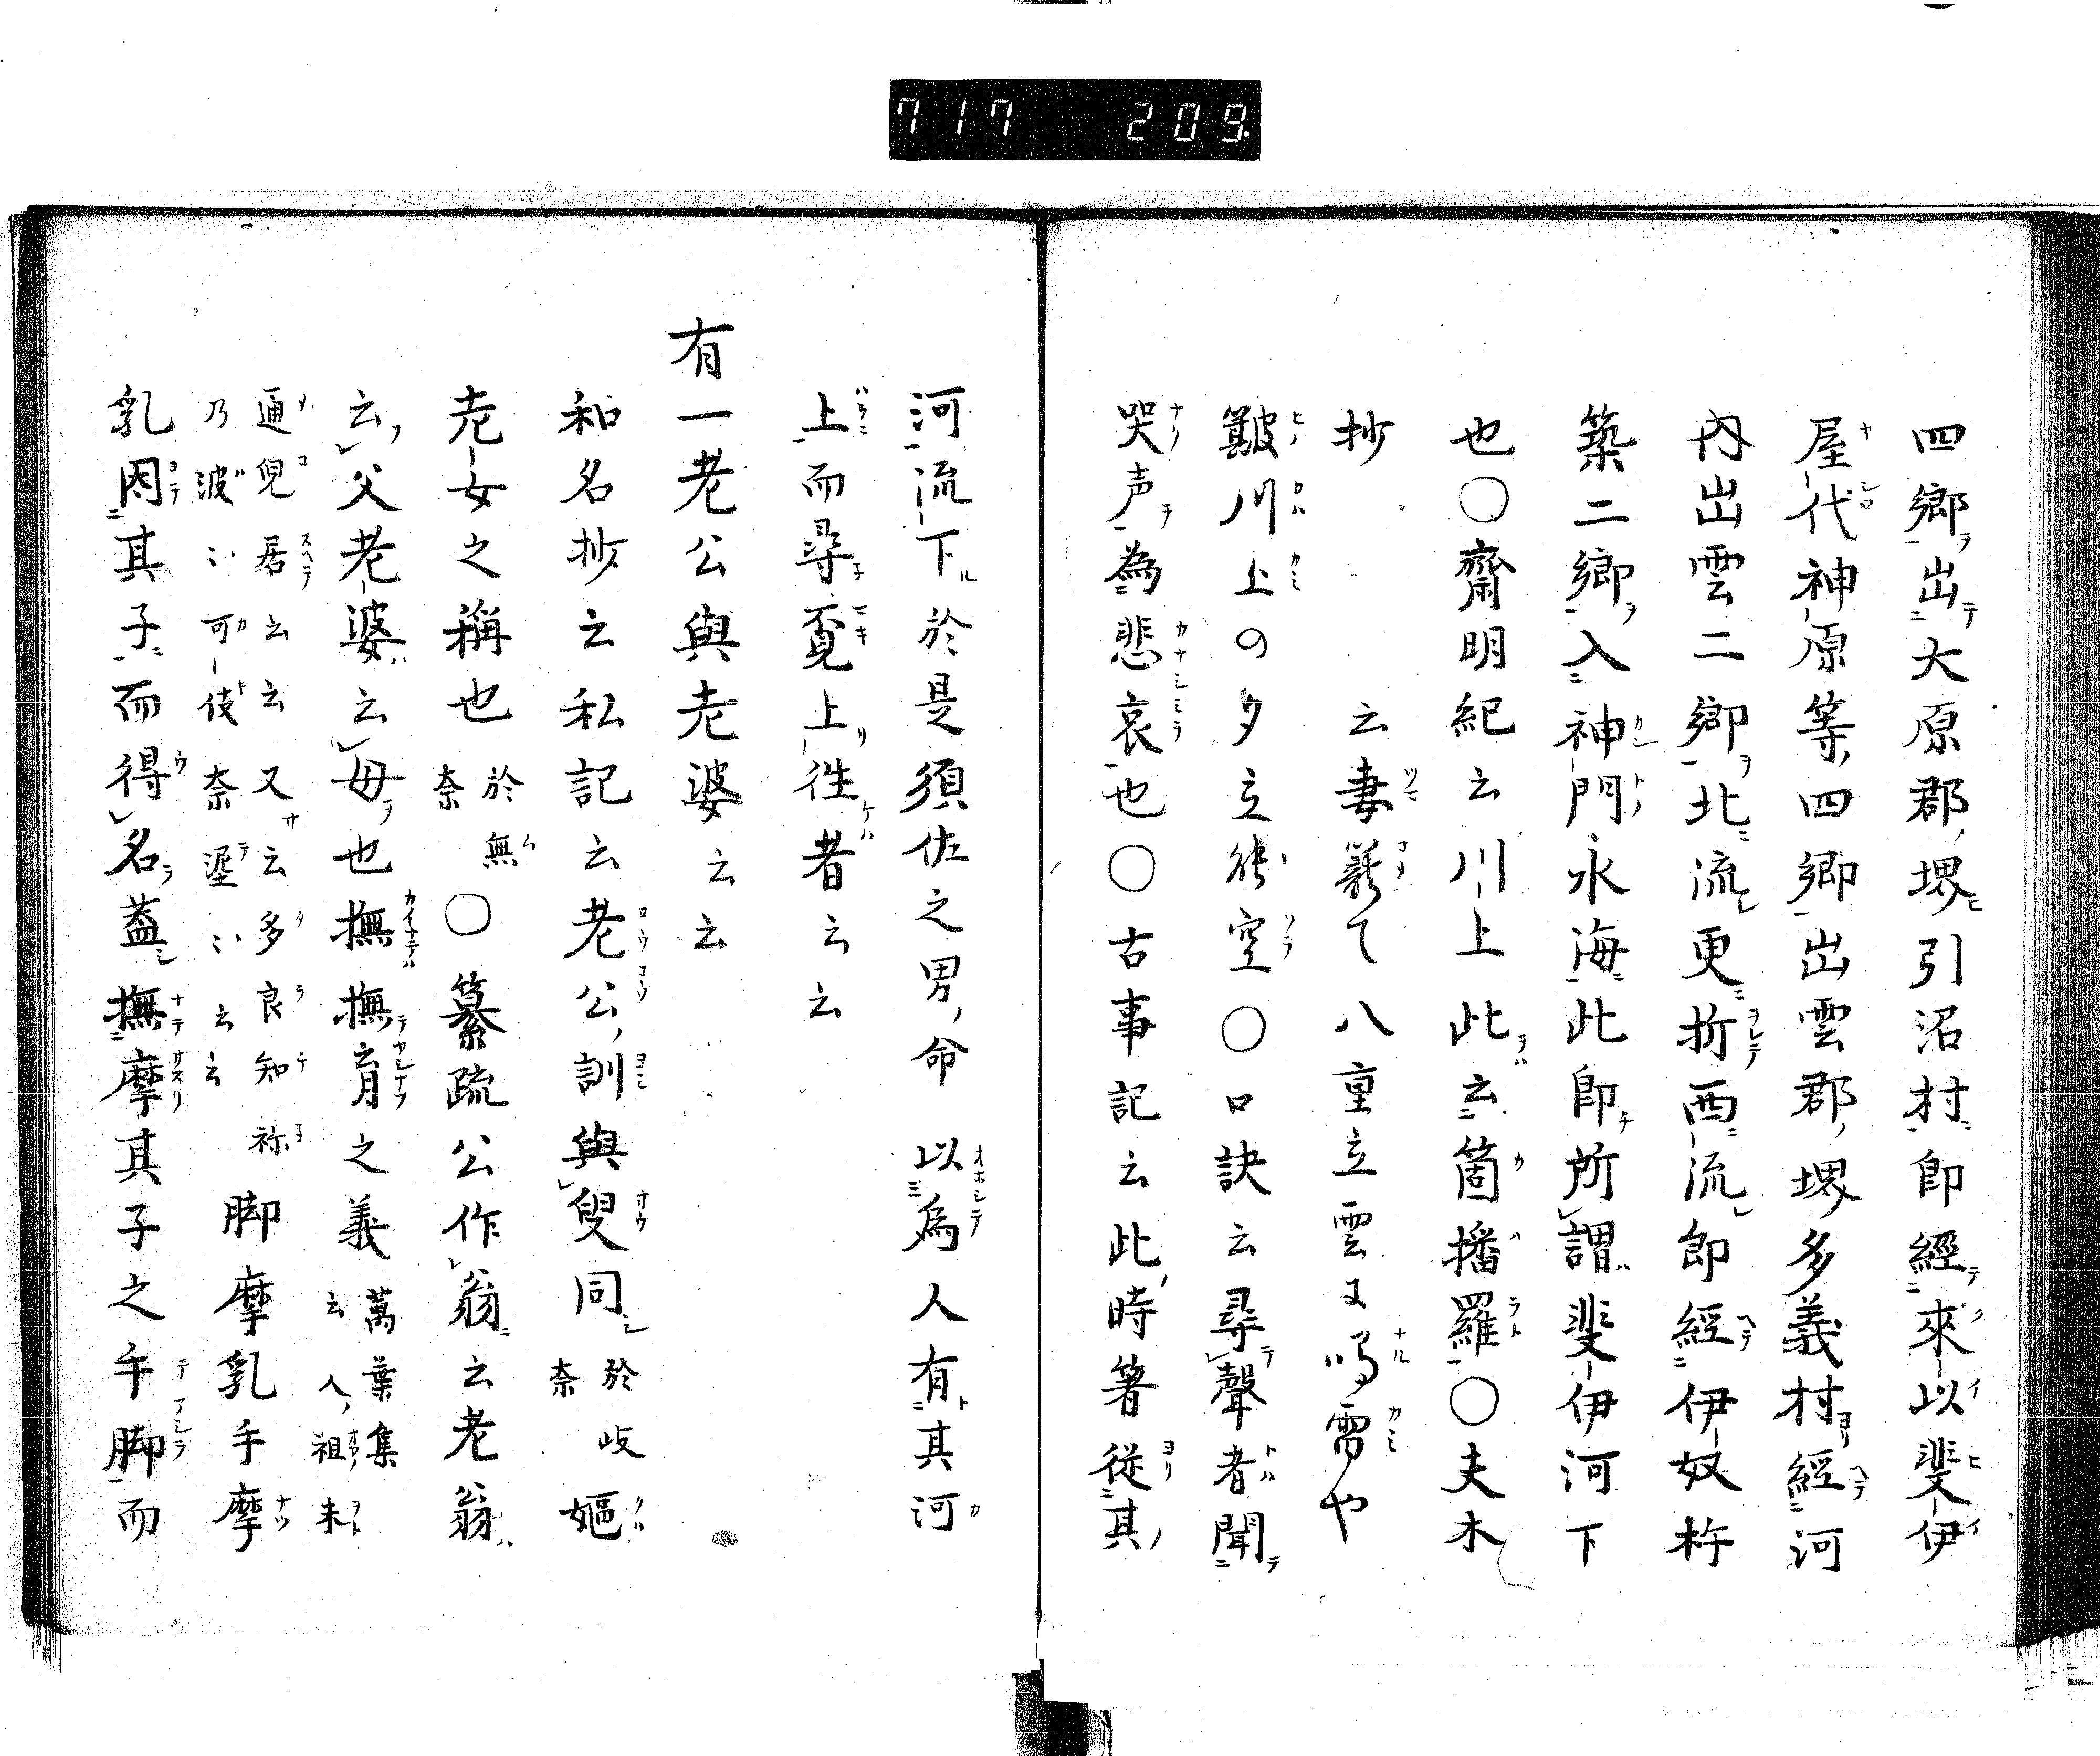 717 209.
四郷出大原郡堺引沼村即經來以斐伊
屋代神原等四郷出雲郡堺多義村經河
内出雲二郷北流更折西流即經伊奴杵
築二郷入神門水海此即所謂斐伊河下
也〇齋明紀云川上此云箇播羅〇夫木
抄 云妻籠て八重立雲に鳴雷や
簸川上の夕立空〇口訣云尋聲者聞
哭声為悲哀也〇古事記云此時箸從其
河流下於是須佐之男命 以為人有其河
上而尋覓上往者云云
有一老公與老婆云云
和名抄云私記云老公訓與叟同於岐奈嫗
老女之稱也於無奈〇纂疏公作翁云老翁
云父老婆云母也撫撫育之義萬葉集云人祖未
通兒居云云又云多良知祢乃波ミ可伎奈ミ云云脚摩乳手摩
乳因其子而得名葢撫摩其子之手脚而